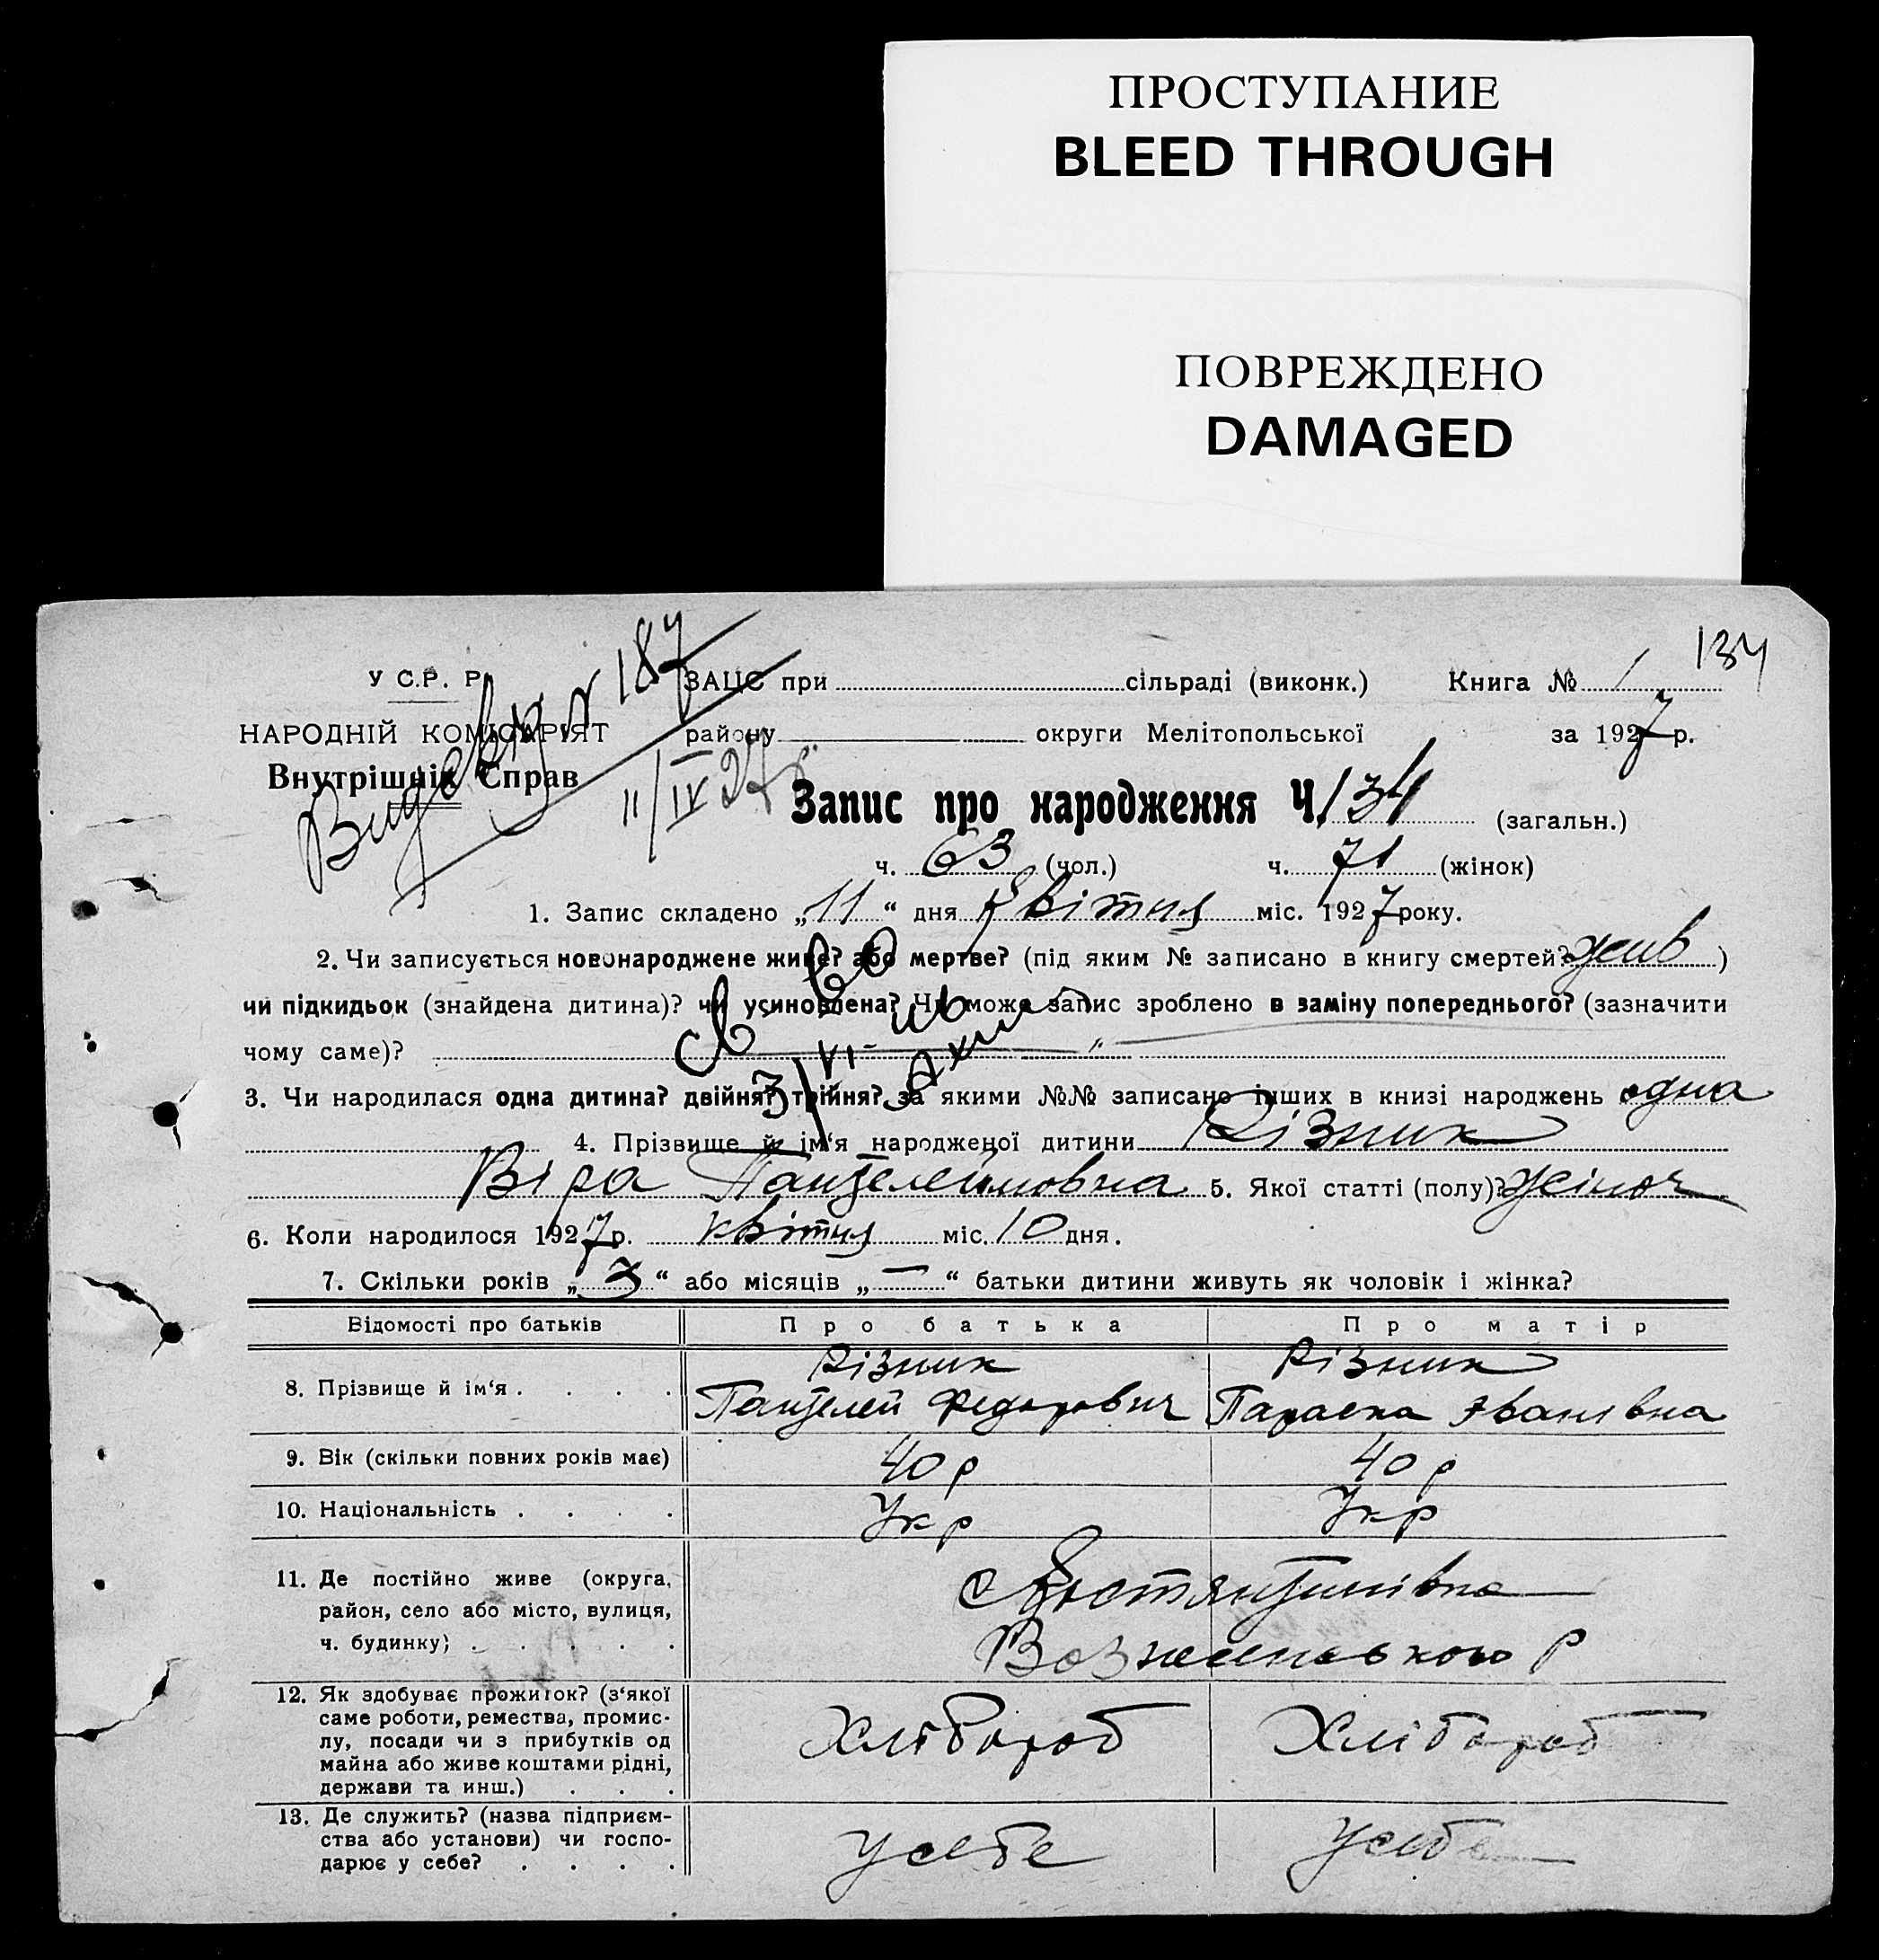 ПРОСТУПАНИЕ
BLEED THROUGH
ПОВРЕЖДЕНО
DAMAGED
134
У С.Р. Р.
НАРОДНІЙ КОМІСАРІЯТ
Внутрішніх Справ
187
11/IV 27 р.
ЗАЦС при сільраді (виконк.) Книга № 1
району округи Мелітопольської за 1927 р.
Запис про народження Ч. 134 (загальн.)
ч. 63 (чол.) ч. 71 (жінок)
1. Запис складено „11“ дня Квітня міс. 1927 року.
2. Чи записується новонароджене живе? або мертве? (під яким № записано в книгу смертей? жив)
чи підкидьок (знайдена дитина)? чи усиновлена? Чи може запис зроблено в заміну попереднього? (зазначити
чому саме)? „
3. Чи народилася одна дитина? двійня? трійня? за якими №№ записано інших в книзі народжень одна
4. Прізвище й ім‘я народженої дитини Різник
Віра Пантелеймовна 5. Якої статті (полу)? жіноч
6. Коли народилося 1927 р. квітня міс. 10 дня.
7. Скільки років „3“ або місяців „—“ батьки дитини живуть як чоловік і жінка?
Відомості про батьків Про батька Про матір
8. Прізвище й ім‘я . . . . Різник Пантелей Федорович Різник Параска Іванівна
9. Вік (скільки повних років має) 40 р 40 р
10. Національність . . . . Укр Укр
11. Де постійно живе (округа,
район, село або місто, вулиця,
ч. будинку) . . . . .
с Костянтинівка
Вознесенського Р
12. Як здобуває прожиток? (з‘якої
саме роботи, ремества, промис-
лу, посади чи з прибутків од
майна або живе коштами рідні,
держави та инш.) . . .
Хлібороб Хлібороб
13. Де служить? (назва підприєм-
ства або установи) чи госпо-
дарює у себе? . . . .
У себе У себе